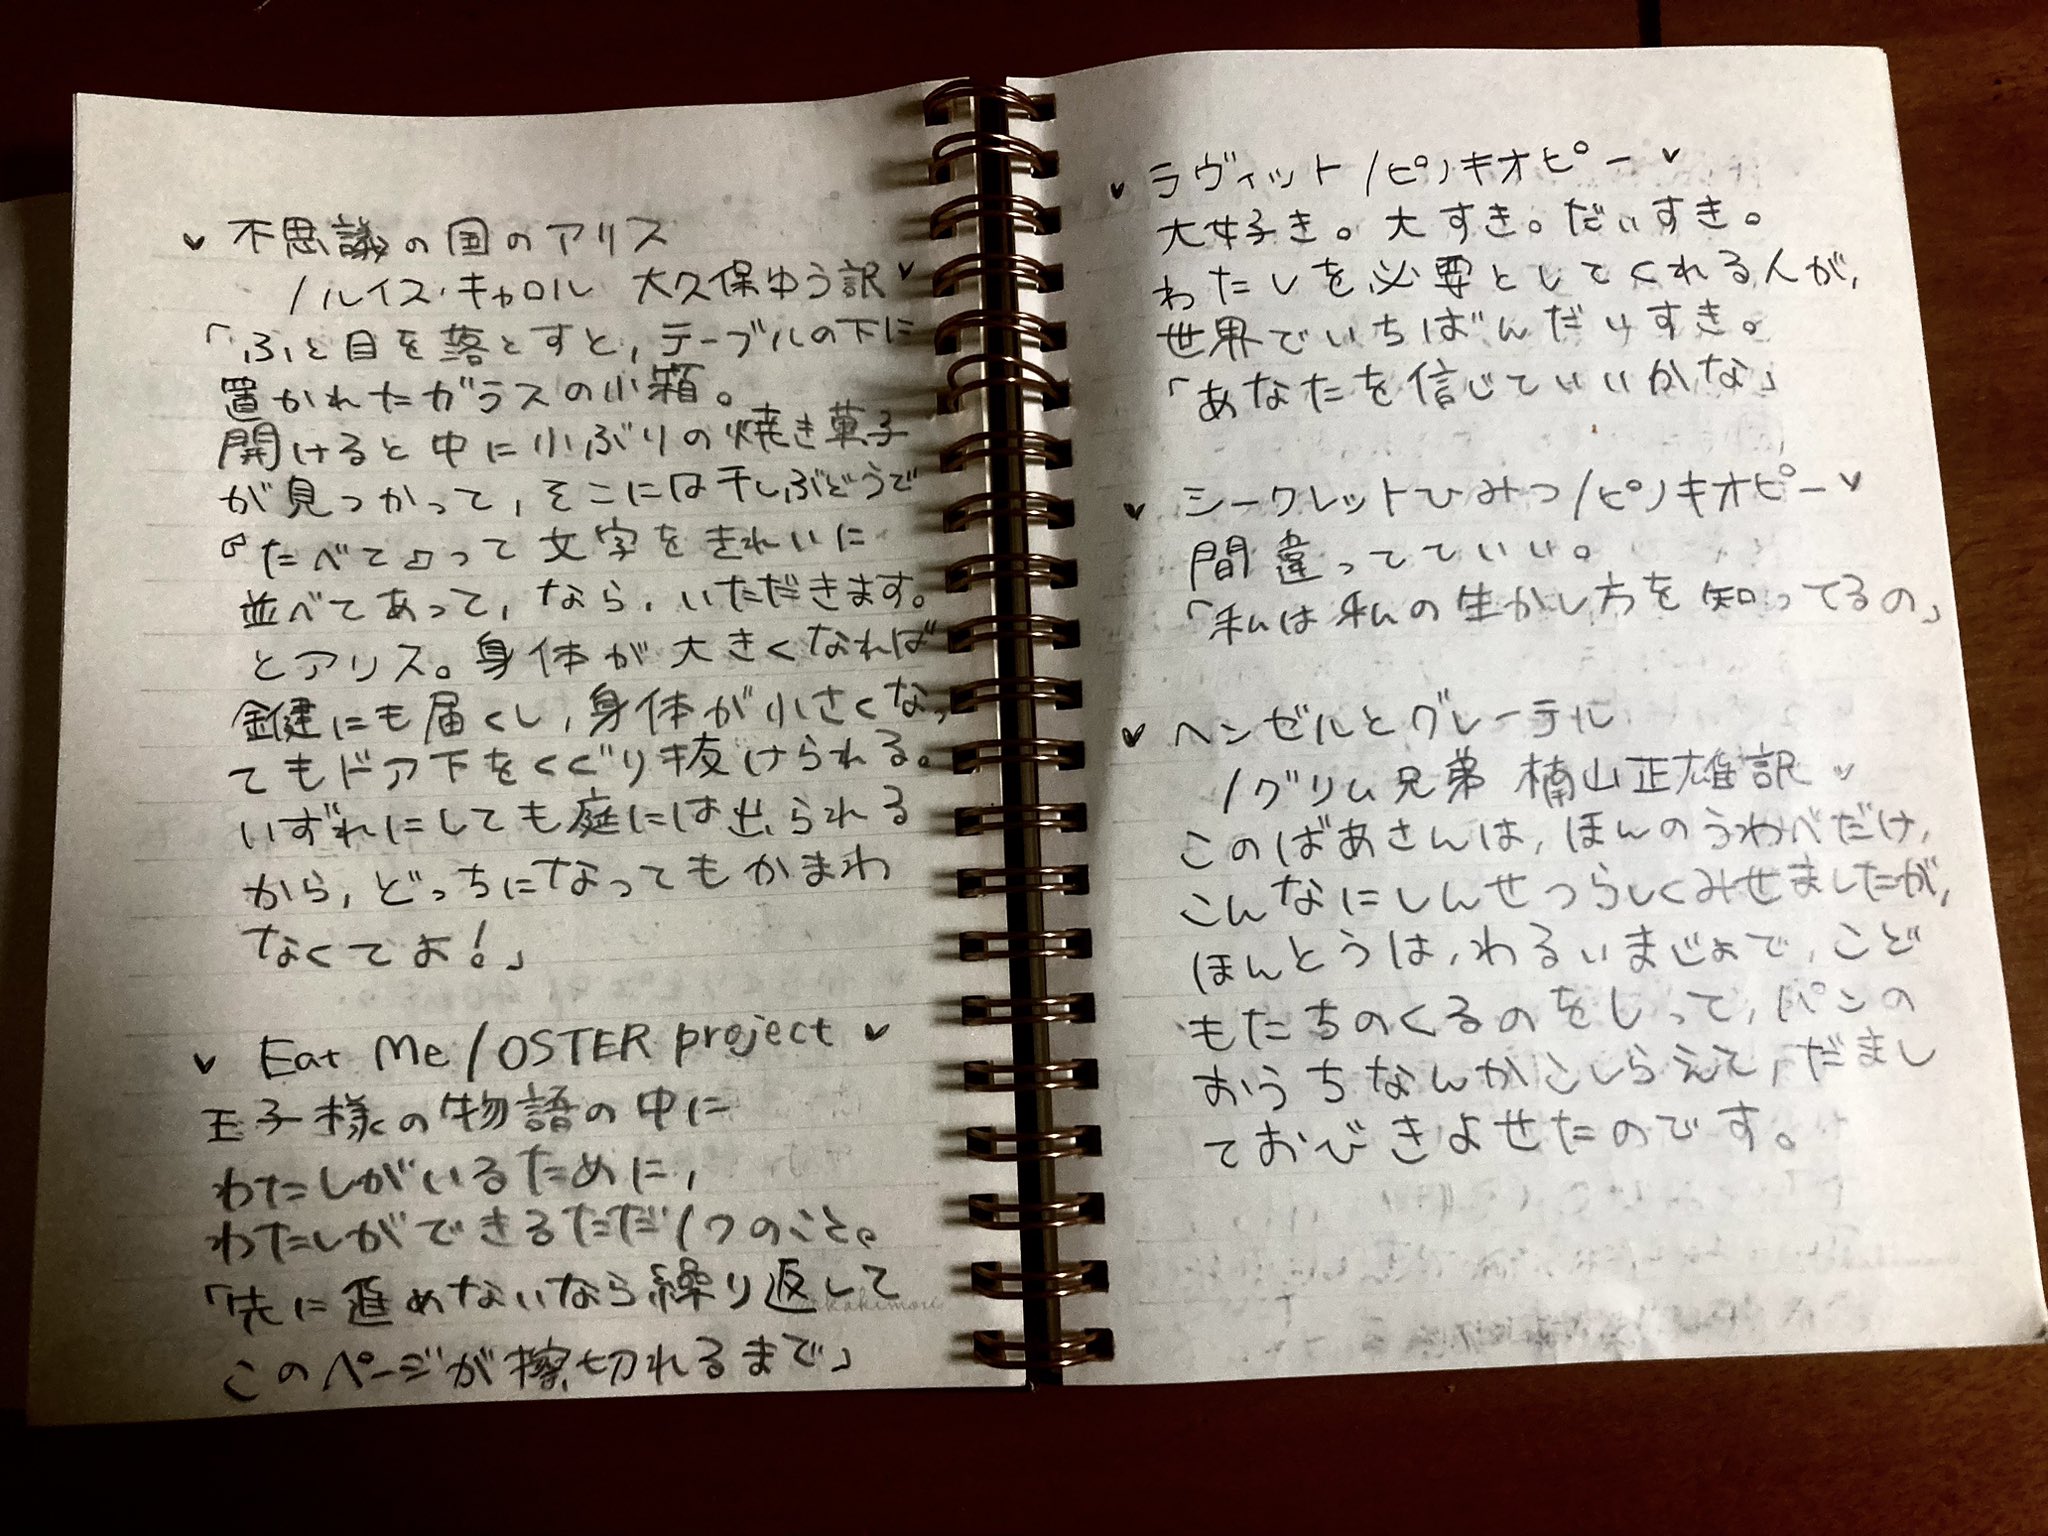 ♥ 不思議の国のアリス
/ルイス・キャロル 大久保ゆう訳♥
「ふと目を落とすと,テーブルの下に
置かれたガラスの小箱。
開けると中に小ぶりの焼き菓子
が見つかって,そこには干しぶどうで
『たべて』って文字をきれいに
並べてあって,なら,いただきます。
とアリス。身体が大きくなれば
鍵にも届くし,身体が小さくなっ
てもドア下をくぐり抜けられる。
いずれにしても庭には出られる
から,どっちになってもかまわ
なくてよ!」
♥ Eat Me/OSTER project ♥
王子様の物語の中に
わたしがいるために,
わたしができるただ1つのこと。
「先に進めないなら繰り返して
このページが擦切れるまで」
kakimori
♥ ラヴィット/ピノキオピー ♥
大好き。大すき。だいすき。
わたしを必要としてくれる人が,
世界でいちばんだいすき。
「あなたを信じていいかな」
♥ シークレットひみつ/ピノキオピー♥
間違ってていい。
「私は私の生かし方を知ってるの」
♥ ヘンゼルとグレーテル
/グリム兄弟 楠山正雄訳 ♥
このばあさんは,ほんのうわべだけ,
こんなにしんせつらしくみせましたが,
ほんとうは,わるいまじょで,こど
もたちのくるのをしって,パンの
おうちなんかこしらえて,だまし
ておびきよせたのです。